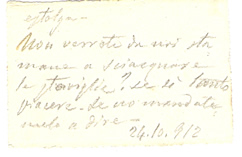 Non verreste da noi sta
mane a sciacquare
le stoviglie? se sì
piacere. se no mandate
melo a dire -
24.10.912